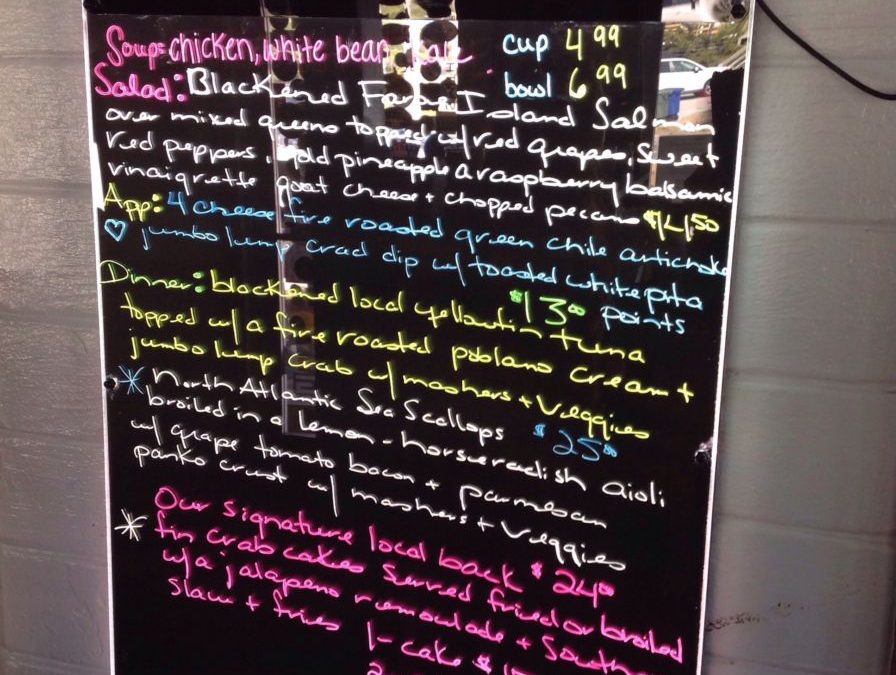 Soup: chicken, white bean + kale cup 4.99
bowl 6.99
Salad: Blackened Faroe Island Salmon
over mixed greens topped w/ red grapes, sweet
red peppers, gold pineapple a raspberry balsamic
vinaigrette goat cheese + chopped pecans $14.50
App: 4 cheese fire roasted green chile artichoke
♡ jumbo lump crab dip w/ toasted white pita
$13.00 points
Dinner: blackened local yellowfin tuna
topped w/ a fire roasted poblano cream +
jumbo lump crab w/ mashers + Veggies
* North Atlantic Sea Scallops $25.00
broiled in a lemon-horseradish aioli
w/ grape tomato bacon + parmesan
panko crust w/ mashers + Veggies
* Our signature local back $24.00
fin crab cakes served fried or broiled
w/ a jalapeno remoulade + South
slaw + fries 1- cake $